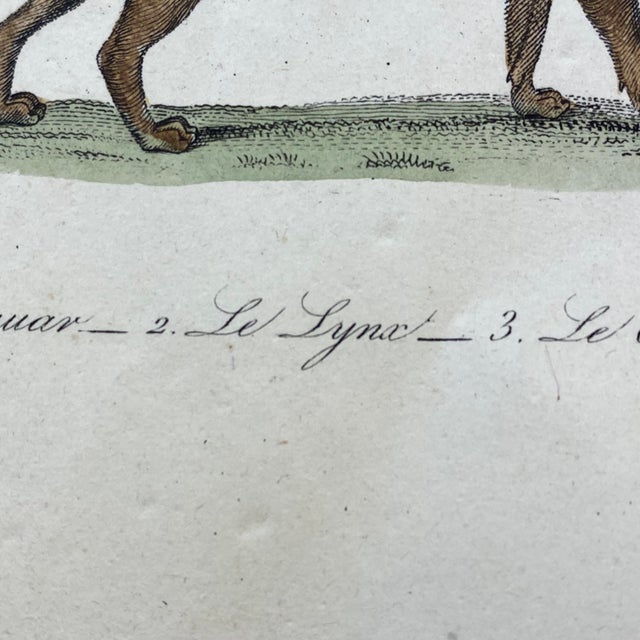 uar — 2. Le Lynx — 3. Le